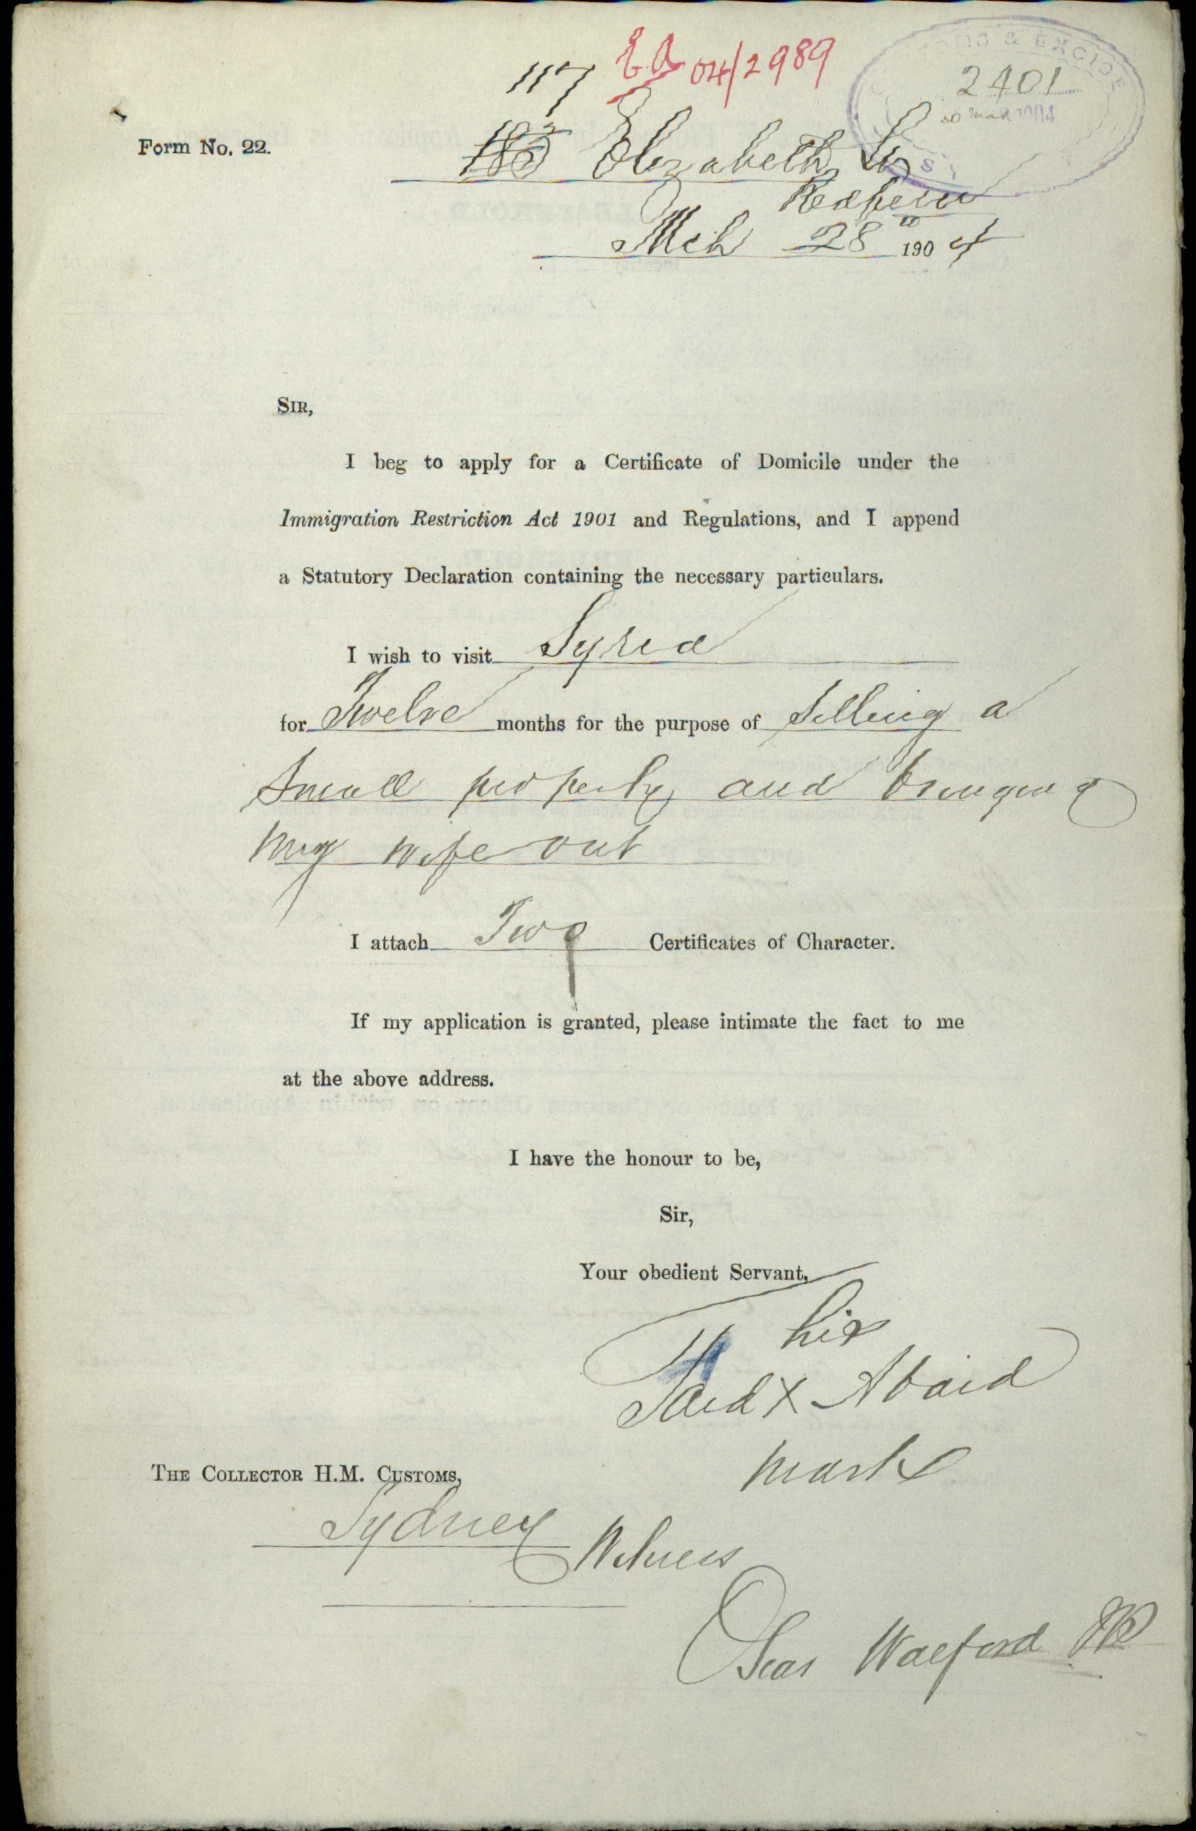 EA 04/2989
117
CUSTOMS & EXCISE
2401
30 MAR 1904
Form No. 22.
Elizabeth St
Redfern
Mch 28" 1904
SIR,
I beg to apply for a Certificate of Domicile under the
Immigration Restriction Act 1901 and Regulations, and I append
a Statutory Declaration containing the necessary particulars.
I wish to visit Syria
for Twelve months for the purpose of Selling a
Small property and bringing
my wife out
I attach Two Certificates of Character.
If my application is granted, please intimate the fact to me
at the above address.
I have the honour to be,
Sir,
Your obedient Servant,
his
Said X Abaid
mark
THE COLLECTOR H.M. CUSTOMS,
Sydney
Witness
Oscar Walford JP